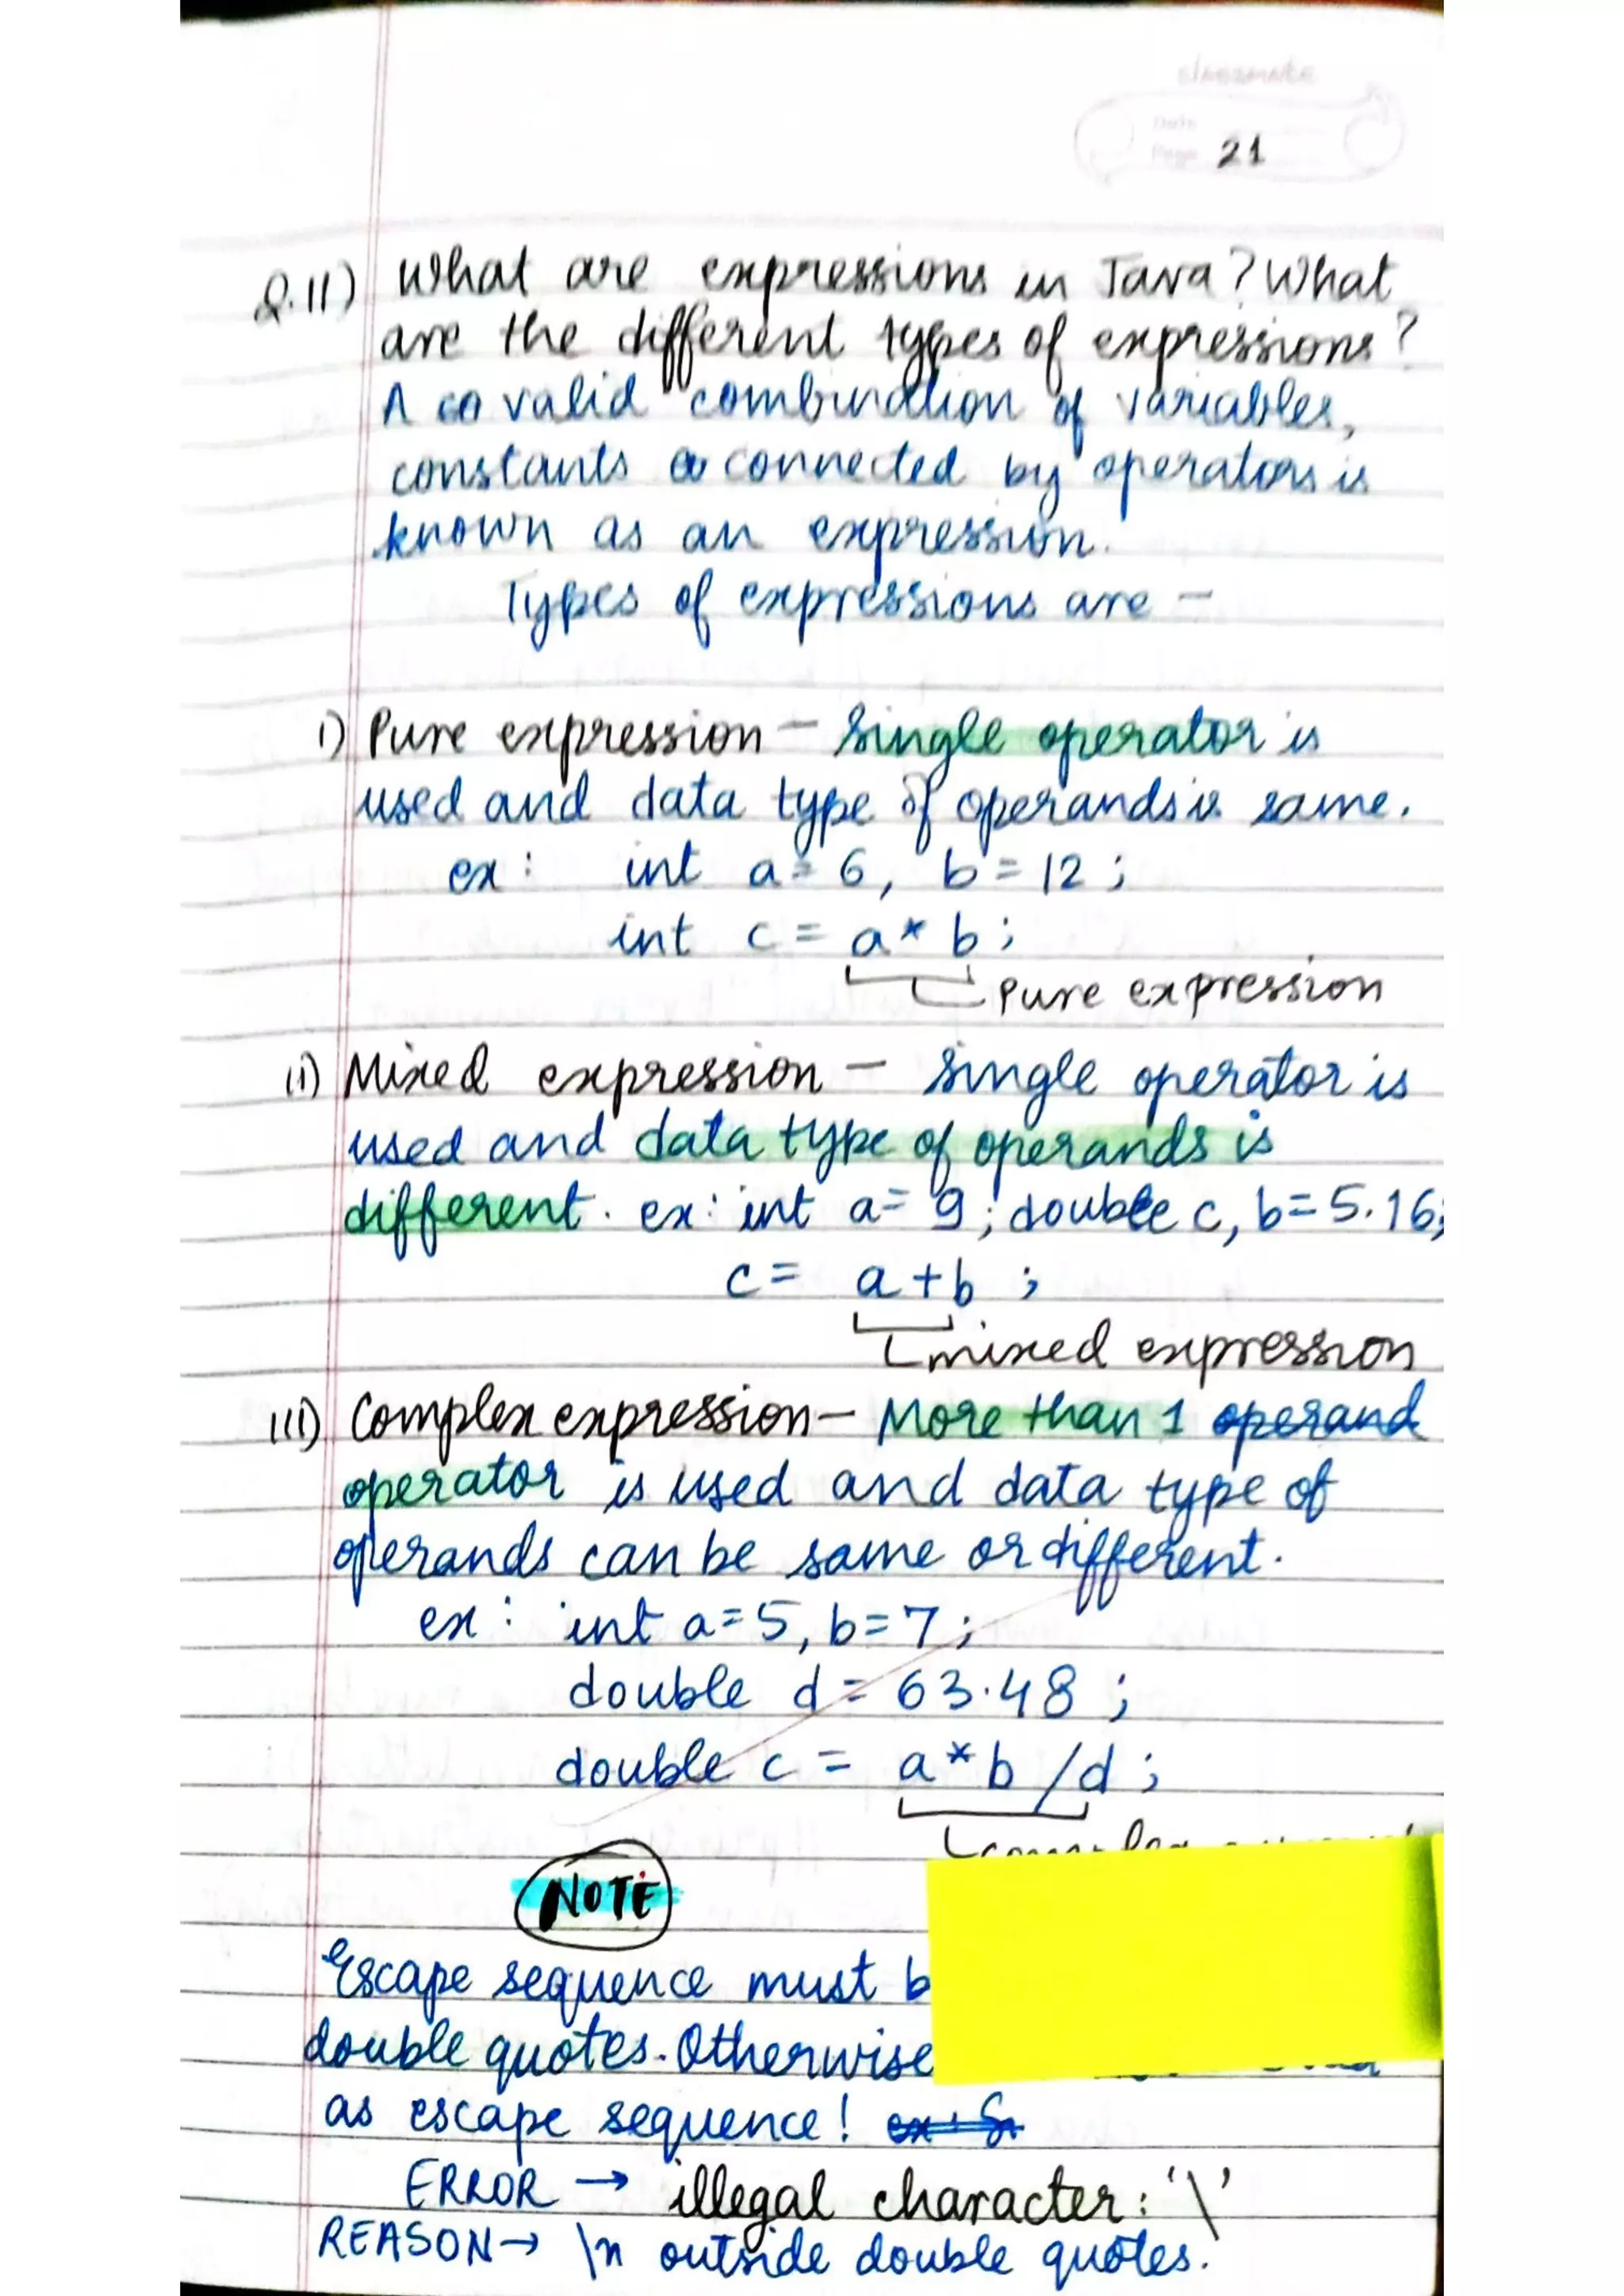 classmate
Date
Page 21
Q.11) What are expressions in Java? What
are the different types of expressions?
A co valid combination of variables,
constants connected by operators is
known as an expression.
Types of expressions are -
i) Pure expression - Single operator is
used and data type of operands is same.
ex: int a = 6, b = 12 ;
int c = a * b ;
Pure expression
ii) Mixed expression - Single operator is
used and data type of operands is
different. ex: int a = 9 ; double c, b = 5.16;
c = a + b ;
mixed expression
iii) Complex expression - More than 1 operand
operator is used and data type of
operands can be same or different.
ex: int a = 5, b = 7 ;
double d = 63.48 ;
double c = a * b / d ;
NOTE
Escape sequence must b
double quotes. Otherwise
as escape sequence! ex:
ERROR → illegal character: '\'
REASON → \n outside double quotes.